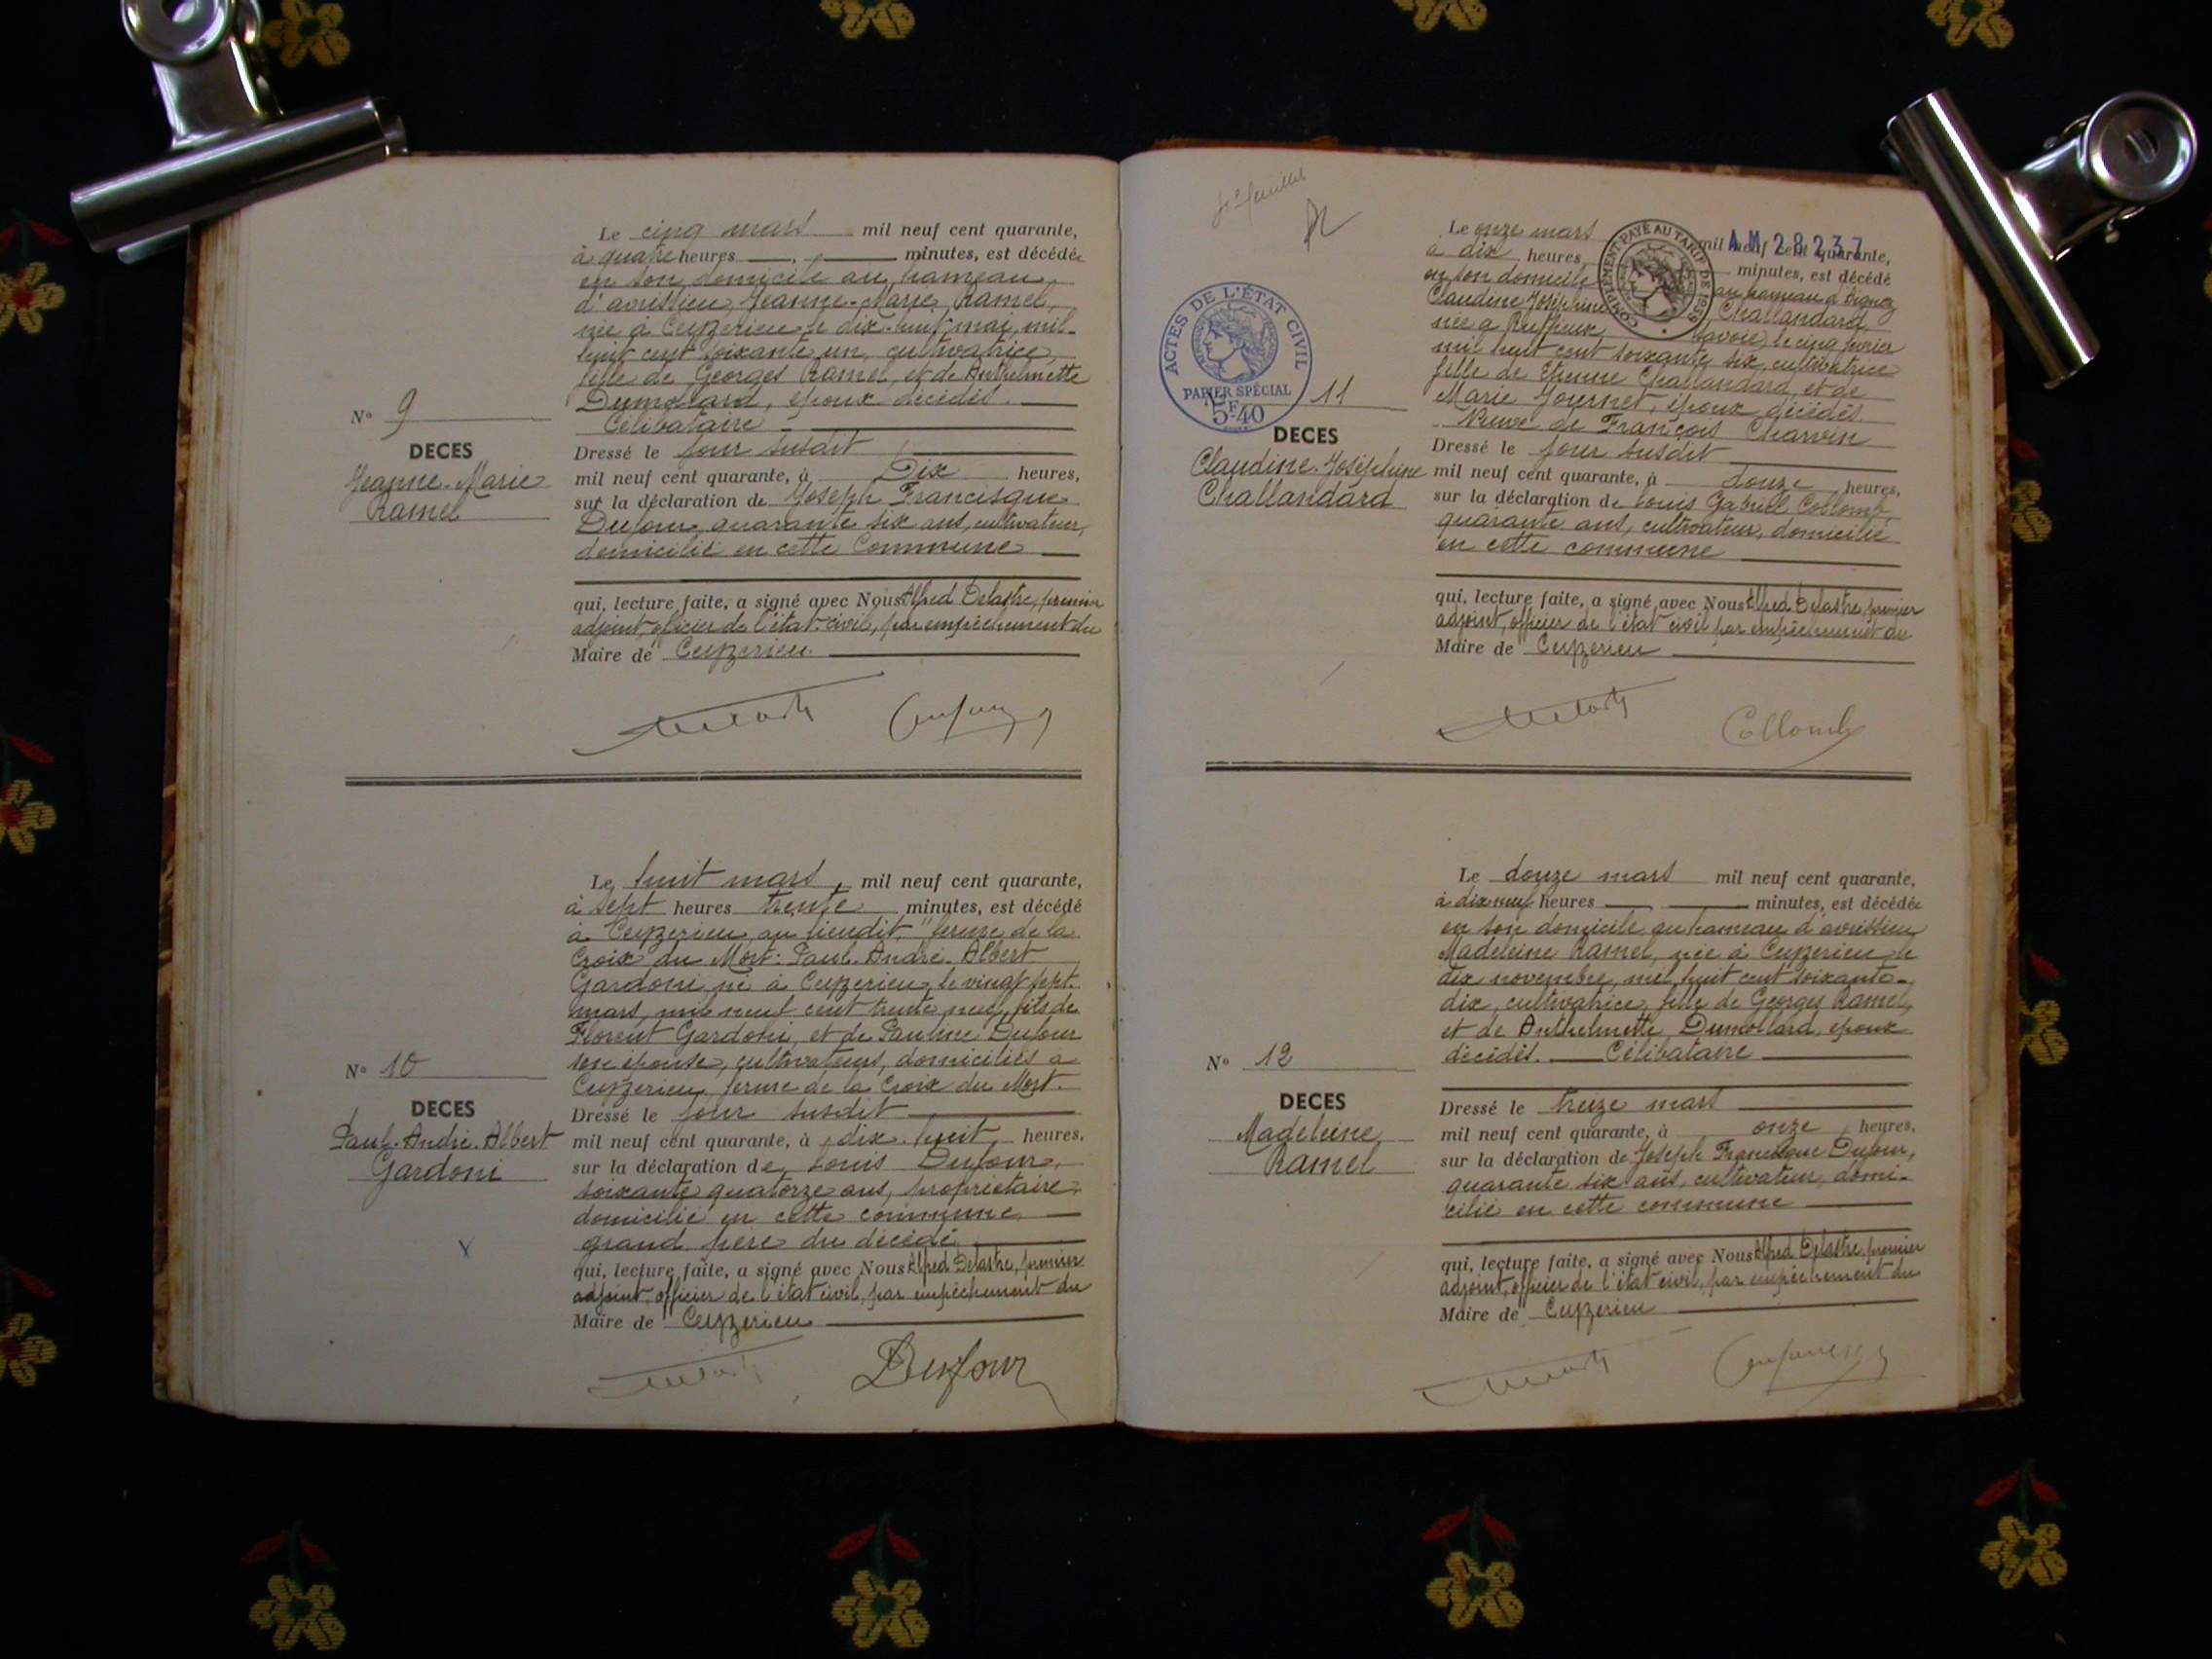 Le cinq mars mil neuf cent quarante,
à quatre heures minutes, est décédée
en son domicile au hameau
d'avrissieu, Jeanne-Marie Ramel,
née à Ceyzerieu le dix-huit mai mil
huit cent soixante un, cultivatrice,
fille de Georges Ramel, et de Anthelmette
Dumollard, époux décédés.
Célibataire
N° 9
DECES
Jeanne-Marie
Ramel
Dressé le jour susdit
mil neuf cent quarante, à Dix heures,
sur la déclaration de Joseph Francisque
Dufour quarante six ans, cultivateur,
domicilié en cette Commune
qui, lecture faite, a signé avec Nous Alfred Delastre, premier
adjoint, officier de l'état-civil, par empêchement du
Maire de Ceyzerieu
Le huit mars, mil neuf cent quarante,
à sept heures trente minutes, est décédé
à Ceyzerieu, au lieudit "ferme de la
Croix du Mort. Paul. André. Albert
Gardoni né à Ceyzerieu, le vingt sept
mars, mil neuf cent trente neuf, fils de
Florent Gardoni, et de Pauline Dufour
son épouse, cultivateurs, domiciliés à
Ceyzerieu, ferme de la Croix du Mort.
N° 10
DECES
Paul. André. Albert
Gardoni
Dressé le jour susdit
mil neuf cent quarante, à dix-huit heures,
sur la déclaration de Louis Dufour,
soixante quatorze ans, propriétaire
domicilié en cette commune
grand père du décédé
qui, lecture faite, a signé avec Nous Alfred Delastre, premier
adjoint, officier de l'état civil, par empêchement du
Maire de Ceyzerieu
Dufour
AM 28237
COMPLEMENT PAYE AU TARIF DE 1939
ACTES DE L'ÉTAT CIVIL
PAPIER SPÉCIAL
5F40
Le onze mars mil neuf cent quarante,
à dix heures, minutes, est décédé
en son domicile au hameau d'Aignoz
Claudine Joséphine Challandard
née à Ruffieux Savoie, le cinq février
mil huit cent soixante six, cultivatrice
fille de Etienne Challandard, et de
Marie Journet, époux décédés.
Veuve de François Charvin
11
DECES
Claudine-Joséphine
Challandard
Dressé le jour susdit
mil neuf cent quarante, à douze heures,
sur la déclaration de Louis Gabriel Collomb
quarante ans, cultivateur, domicilié
en cette commune
qui, lecture faite, a signé avec Nous Alfred Delastre, premier
adjoint, officier de l'état civil par empêchement du
Maire de Ceyzerieu
Collomb
Le douze mars mil neuf cent quarante,
à dix neuf heures minutes, est décédée
en son domicile au hameau d'avrissieu
Madeleine Ramel, née à Ceyzerieu le
dix novembre, mil huit cent soixante-
dix, cultivatrice, fille de Georges Ramel,
et de Anthelmette Dumollard, époux
décédés. Célibataire
N° 12
DECES
Madeleine
Ramel
Dressé le treize mars
mil neuf cent quarante, à onze heures,
sur la déclaration de Joseph Francisque Dufour,
quarante six ans, cultivateur, domi-
cilié en cette commune
qui, lecture faite, a signé avec Nous Alfred Delastre, premier
adjoint, officier de l'état civil, par empêchement du
Maire de Ceyzerieu